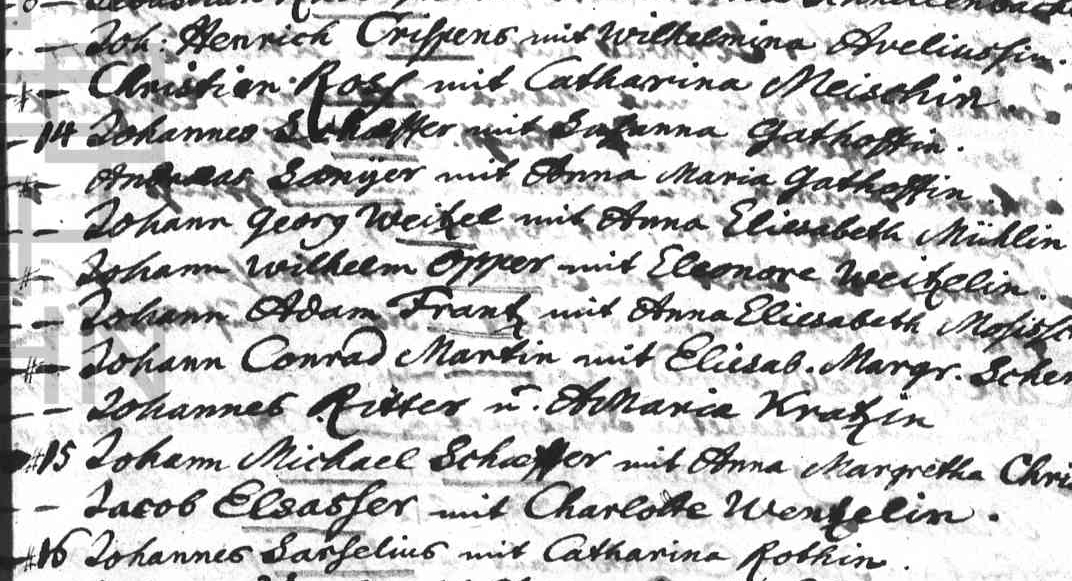 – Joh: Henrich Crispens mit Wilhelmina Aveliussin.
– Christian Ross mit Catharina Meischin.
14 Johannes Schæffer mit Susanna Gathoffin.
– Andreas Sanÿer mit Anna Maria Gathoffin.
– Johann Georg Weitzel mit Anna Eliesabeth Mühlin
– Johann Wilhelm Opper mit Eleonore Weitzelin.
– Johann Adam Frantz mit Anna Eliesabeth
– Johann Conrad Martin mit Eliesab. Margr. Scher
– Johannes Ritter u. AMaria Kratzin
15 Johann Michael Schæffer mit Anna Margretha Chri
– Jacob Elsasser mit Charlotte Wentzelin.
16 Johannes Sarselius mit Catharina Rothin.